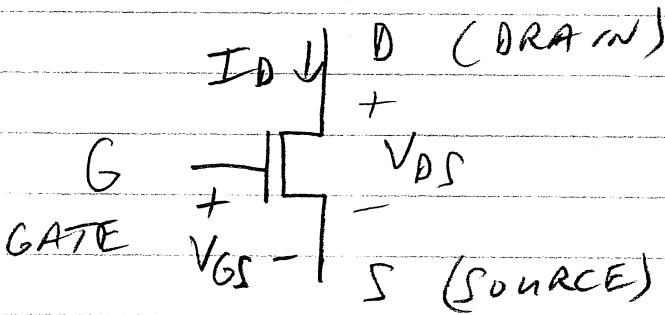 I_D ↓ D (DRAIN)
+
G V_DS
+ −
GATE V_GS −
S (SOURCE)